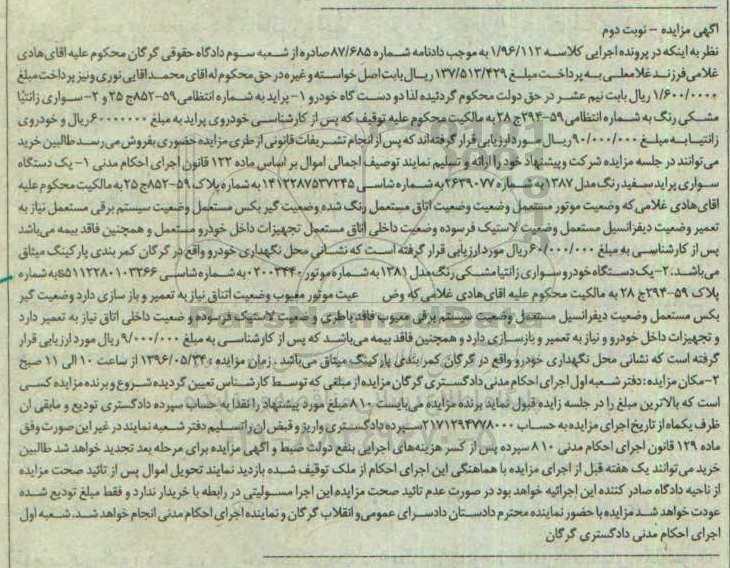 آگهی مزایده – نوبت دوم
نظر به اینکه در پرونده اجرایی کلاسه ۱/۹۶/۱۱۲ به موجب دادنامه شماره ۸۷/۶۸۵ صادره از شعبه سوم دادگاه حقوقی گرگان محکوم علیه اقای هادی
غلامی فرزند غلامعلی به پرداخت مبلغ ۱۳۷/۵۱۳/۴۲۹ ریال بابت اصل خواسته و غیره در حق محکوم له اقای محمد اقایی نوری و نیز پرداخت مبلغ
۱/۶۰۰/۰۰۰ ریال بابت نیم عشر در حق دولت محکوم گردیده لذا دو دست گاه خودرو ۱- پراید به شماره انتظامی ۵۹-۸۵۲ج ۲۵ و ۲- سواری زانتیا
مشکی رنگ به شماره انتظامی ۵۹-۲۹۴ج ۲۸ به مالکیت محکوم علیه توقیف که پس از کارشناسی خودروی پراید به مبلغ ۶۰۰۰۰۰۰۰ ریال و خودروی
زانتیا به مبلغ ۹۰/۰۰۰/۰۰۰ ریال مورد ارزیابی قرار گرفته اند که پس از انجام تشریفات قانونی از طری مزایده حضوری بفروش می رسد طالبین خرید
می توانند در جلسه مزایده شرکت و پیشنهاد خود را ارائه و تسلیم نمایند توصیف اجمالی اموال بر اساس ماده ۱۲۲ قانون اجرای احکام مدنی ۱- یک دستگاه
سواری پراید سفید رنگ مدل ۱۳۸۷ به شماره ۲۶۳۹۰۷۷ به شماره شاسی ۱۴۱۲۲۸۷۵۳۷۲۴۵ به شماره پلاک ۵۹-۸۵۲ج ۲۵ به مالکیت محکوم علیه
اقای هادی غلامی که وضعیت موتور مستعمل وضعیت وضعیت اتاق مستعمل رنگ شده وضعیت گیر بکس مستعمل وضعیت سیستم برقی مستعمل نیاز به
تعمیر وضعیت دیفرانسیل مستعمل وضعیت لاستیک فرسوده وضعیت داخلی اتاق مستعمل تجهیزات داخل خودرو مستعمل و همچنین فاقد بیمه می باشد
پس از کارشناسی به مبلغ ۶۰/۰۰۰/۰۰۰ ریال مورد ارزیابی قرار گرفته است که نشانی محل نگهداری خودرو واقع در گرگان کمر بندی پارکینگ میثاق
می باشد. ۲- یک دستگاه خودرو سواری زانتیا مشکی رنگ مدل ۱۳۸۱ به شماره موتور ۰۲۰۰۳۴۴۰ به شماره شاسی s۵۱۱۲۲۸۰۱۰۳۲۶۶ به شماره
پلاک ۵۹-۲۹۴ج ۲۸ به مالکیت محکوم علیه اقای هادی غلامی که وض عیت موتور معیوب وضعیت اتناق نیاز به تعمیر و باز سازی دارد وضعیت گیر
بکس مستعمل وضعیت دیفرانسیل مستعمل وضعیت سیستم برقی معیوب فاقد باطری وضعیت لاستیک فرسوده وضعیت داخلی اتاق نیاز به تعمیر دارد
و تجهیزات داخل خودرو و نیاز به تعمیر و بازسازی دارد و همچنین فاقد بیمه می باشد که پس از کارشناسی به مبلغ ۹/۰۰۰/۰۰۰ ریال مورد ارزیابی قرار
گرفته است که نشانی محل نگهداری خودرو واقع در گرگان کمربندی پارکینگ میثاق می باشد . زمان مزایده ، ۱۳۹۶/۰۵/۳۴ از ساعت ۱۰ الی ۱۱ صبح
۲- مکان مزایده : دفتر شعبه اول اجرای احکام مدنی دادگستری گرگان مزایده از مبلغی که توسط کارشناس تعیین گردیده شروع و برنده مزایده کسی
است که بالاترین مبلغ را در جلسه زایده قبول نماید برنده مزایده می بایست ۱۰ ٪ مبلغ مورد پیشنهاد را نقدا به حساب سپرده دادگستری تودیع و مابقی ان
ظرف یکماه از تاریخ اجرای مزایده به حساب ۲۱۷۱۲۹۴۷۷۸۰۰۰ سپرده دادگستری واریز و قبض ان راتسلیم دفتر شعبه نمایند در غیر این صورت وفق
ماده ۱۲۹ قانون اجرای احکام مدنی ۱۰ ٪ سپرده پس از کسر هزینه های اجرایی بنفع دولت ضبط و اگهی مزایده برای مرحله بعد تجدید خواهد شد طالبین
خرید می توانند یک هفته قبل از اجرای مزایده با هماهنگی این اجرای احکام از ملک توقیف شده بازدید نمایند تحویل اموال پس از تائید صحت مزایده
از ناحیه دادگاه صادر کننده این اجرائیه خواهد بود در صورت عدم تائید صحت مزایده این اجرا مسولیتی در رابطه با خریدار ندارد و فقط مبلغ تودیع شده
عودت خواهد شد مزایده با حضور نماینده محترم دادستان دادسرای عمومی و انقلاب گرگان و نماینده اجرای احکام مدنی انجام خواهد شد. شعبه اول
اجرای احکام مدنی دادگستری گرگان